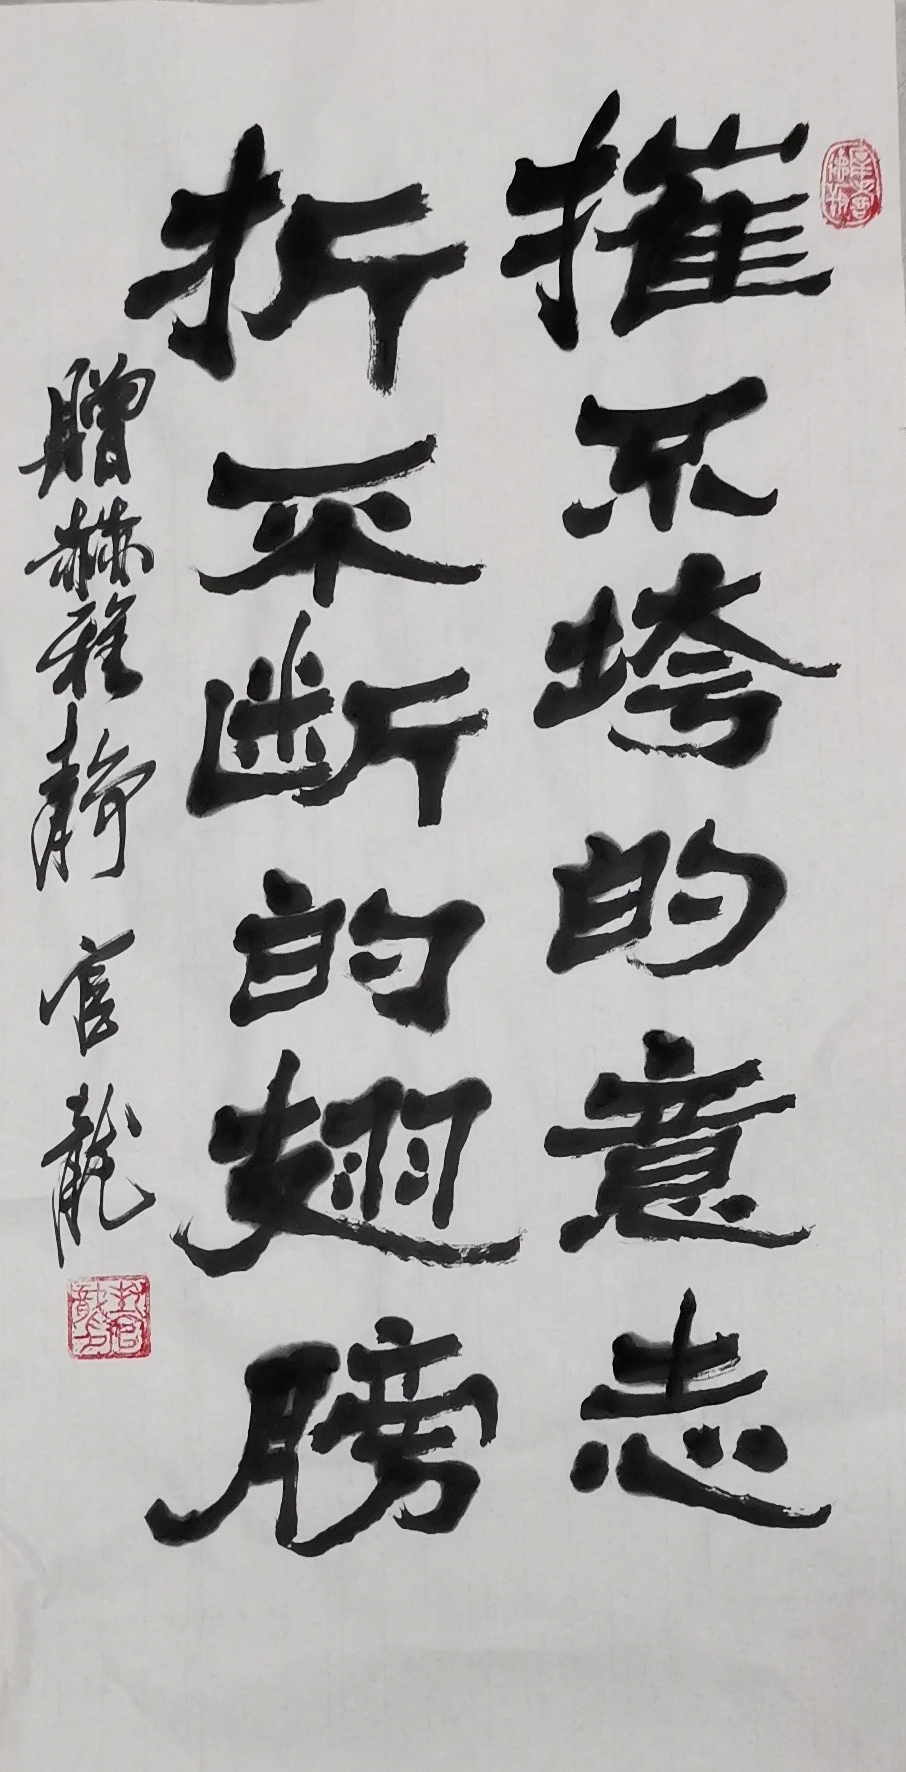 摧不垮的意志
折不断的翅膀
赠赫雅静 官龍